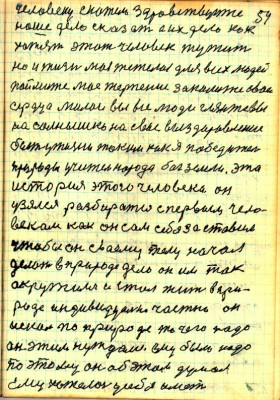 человеку скажем здравствуйте 59
наше дело сказать а их дело как
хотят этот человек тужит
но и жизнь моя тяжелая для всех людей
поймите мое терпение закалите свои
сердца милые вы все люди гляньте вы
на солнышко на свое выздоровление
быть таким как я победителем
природы учителя народа богом земли. Эта
история этого человека он
взялся разбираться с первым чело-
веком как он сам себя заставил
чтобы он своему телу начал
делать в природе дело он им так
окружился и стал жить в при-
роде индивидуально частно он
искал по природе то чего надо
он этим нуждался ему было надо
по этому он об этом думал
ему хотелось у себя иметь